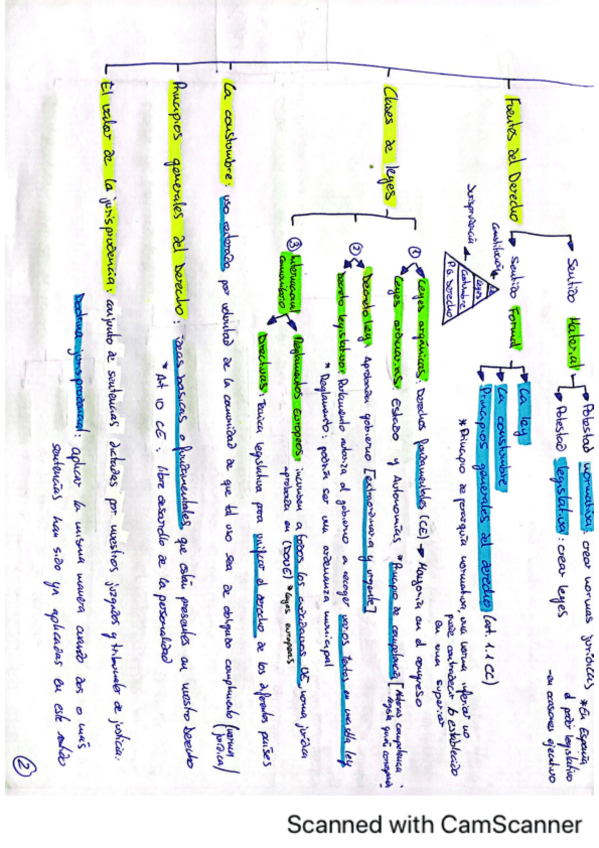 Fuentes del Derecho
Sentido Material
Potestad normativa: crear normas jurídicas
* En España
el poder legislativo
en ocasiones ejecutivo
Potestad legislativa: crear leyes
Sentido Formal
La ley
La constumbre
Principios generales del derecho (art. 1.1 CC)
* Principio de jerarquía normativa, una norma inferior no
puede contradecir lo establecido
en una superior
constitución
Leyes
Costumbre
P.G. Derecho
Jurisprudencia
Clases de leyes
① Leyes orgánicas: Derechos fundamentales (CE) → Mayoría en el congreso
Leyes ordinarias: Estado y Autonomías * Principio de competencia
② Decreto Ley: Aprobarán gobierno [extraordinaria y urgente]
Decreto legislativo: Parlamento autoriza al gobierno a recoger varios textos en una sola ley
* Reglamento: podría ser una ordenanza municipal
③ Internacional
Comunitario
Reglamentos europeos: incumben a todos los ciudadanos UE norma jurídica
aprobada en (DOUE) * Leyes europeas
Directivas: Técnica legislativa para unificar el derecho de los diferentes países
La constumbre: uso reiterado por voluntad de la comunidad de que tal uso sea de obligado cumplimiento (norma jurídica)
Principios generales del Derecho: ideas básicas o fundamentales que están presentes en nuestro Derecho
* Art 10 CE: libre desarrollo de la personalidad
El valor de la jurisprudencia: conjunto de sentencias dictadas por nuestros juzgados y tribunales de justicia.
Doctrina jurisprudencial: aplicar la misma manera cuando dos o más
sentencias han sido ya aplicadas en este sentido
②
Scanned with CamScanner